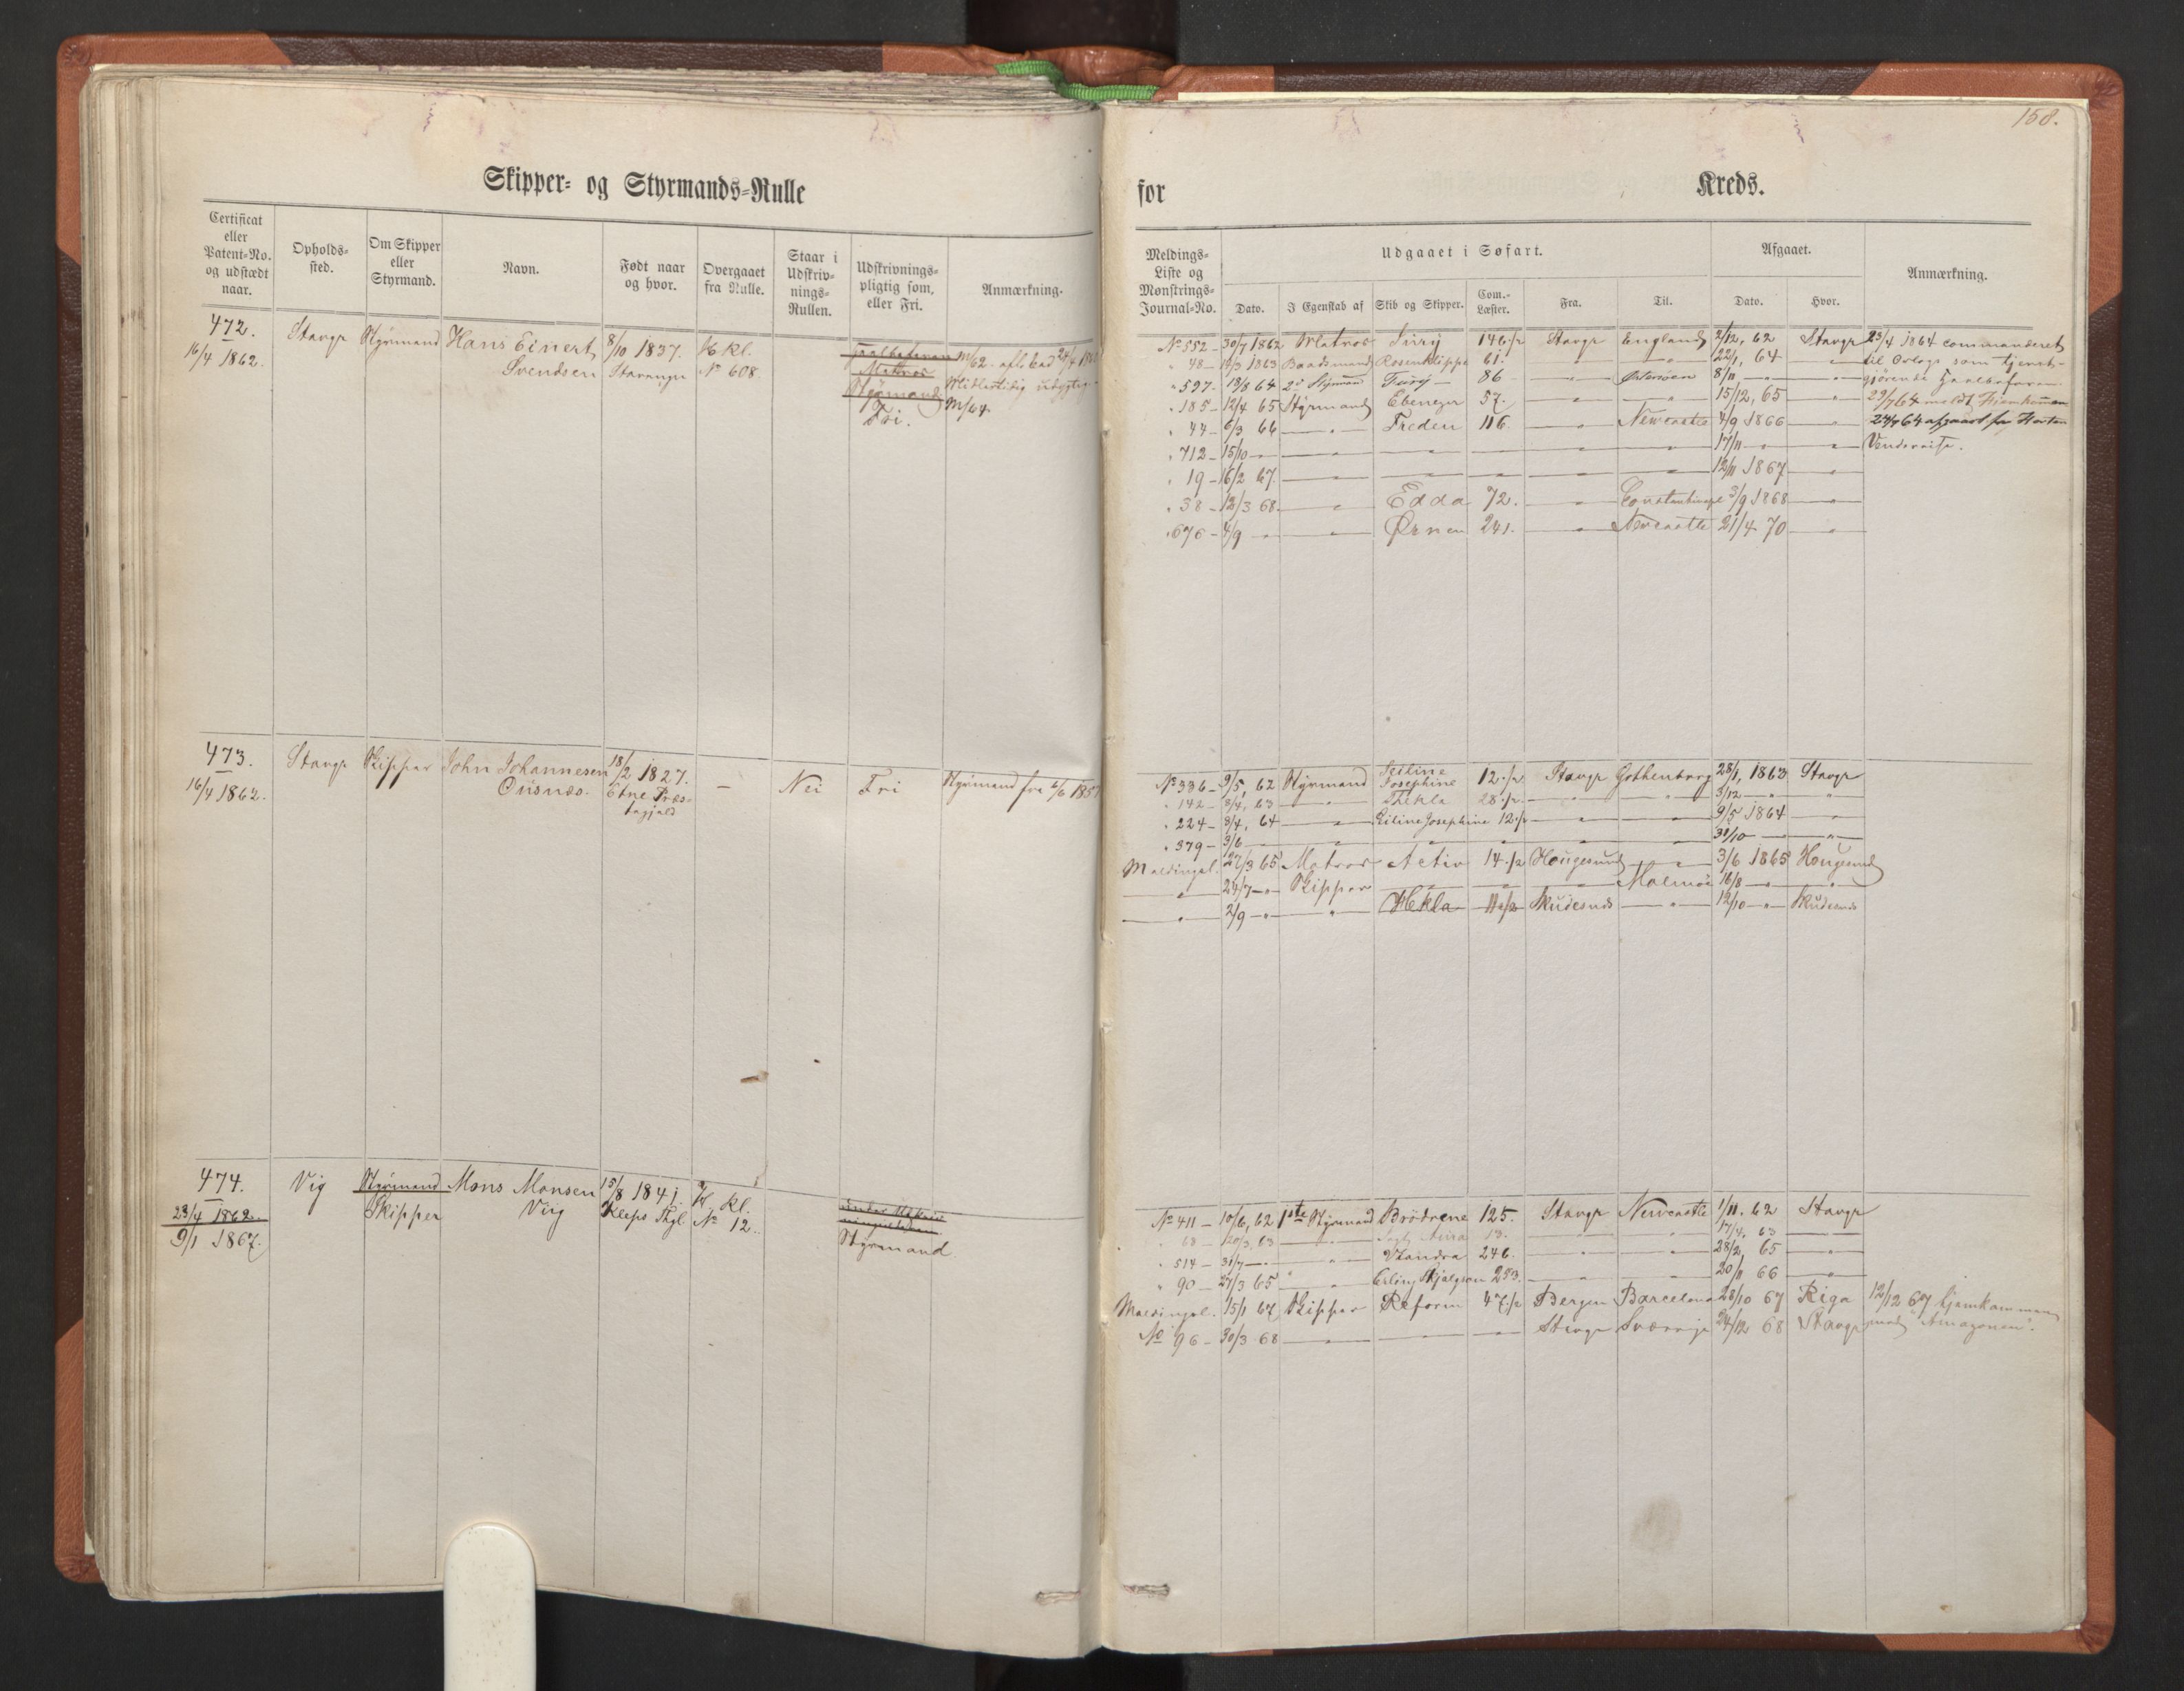 Skipper- og Styrmands-Rulle
Certificat eller Patent-No. og udstædt naar.
Opholds-sted.
Om Skipper eller Styrmand.
Navn.
Født naar og hvor.
Overgaaet fra Rulle.
Staar i Udskriv-nings-Rullen.
Udskrivnings-pligtig som, eller Fri.
Anmærkning.
472.
16/4 1862.
Stavgr
Styrmand
Hans Einert
Svendsen
8/10 1837.
Stavanger
No 608.
Matros
Styrmand
Fri.
M/64
473.
16/4 1862.
Stavgr
Skipper
John Johannesen
18/2 1827.
Etne Præs-
tegjeld
-
Nei
Fri
Styrmand fra
474.
23/4 1862.
9/1 1867.
Vig
Styrmand
Skipper
Mons Monsen
Viig
15/8 1841.
Kleps Thgl
No 12.
Styrmand
158.
for Kreds.
Meldings-Liste og Mønstrings-Journal-No.
Udgaaet i Søfart.
Dato.
I Egenskab af
Skib og Skipper.
Com.-Læster.
Fra.
Til.
Afgaaet.
Dato.
Hvor.
Anmærkning.
No 552 - 30/7 1862 Matros 146 1/2 Stavgr England 2/12, 62 Stavgr 23/4 1864 commanderet
" 48 - 1863 Baadsmand Rosenklippe 61. " " 22/1, 64 " til Orlogs som tjenst-
" 597 - 18/8 64 2d Styrmand 86 " Østersøen 8/11 " " gjørende
" 185 - 12/4 65 Styrmand Ebenezer 57. " " 15/12, 65 " 29/7 64 meldt Hjemkommen
" 44 - 6/3 66 " Freden 116. " Newcastle 4/9 1866 "
" 712 - 15/10 " " " " " " 17/11 " "
" 19 - 16/2 67. " " " " " 12/11 1867 "
" 38 - 12/3 68. " Edda 72. " 3/9 1868 "
" 676 - 4/9 " " Ørnen 241. " Newcastle 21/4 70 "
No 336 - 9/5, 62 Styrmand Josephine 12 1/2 Stavgr Gothenborg 28/1, 1863 Stavgr
" 142 - 63 " Thekla 28 1/2 " " 3/12 " "
" 224 - 3/4, 64 " Josephine 12 1/2 " " 9/5 1864 "
" 379 - 3/6 " " " " " " 31/10 " "
Meldingsl. 27/3 65 Matros Activ 14 1/2 Hougesund " 3/6 1865 Hougesund
" 24/7 " Skipper " " " Malmö 16/8 " "
" 2/9 " " Hekla 11 1/2 Skudesnæs " 12/10 " Skudesnæs
No 411 - 10/6, 62 1ste Styrmand Brödrene 125. Stavgr Newcastle 1/11. 62 Stavgr
" 68 - 20/3, 63 " " " 17/4, 63 "
" 514 - 31/7 " " 246. " " 28/2, 65 "
" 90 - 27/3 65 " Erling Skjalgson 253. " " 20/11 66 "
Meldingsl. 15/1 67 Skipper Reform 47 1/2 Bergen Barcelona 28/10 67 Riga 12/12 67 hjemkommen
No 96 - 30/3 68 " " " Stavgr Sverrige 24/12 68 Stavgr med "Amazonen".